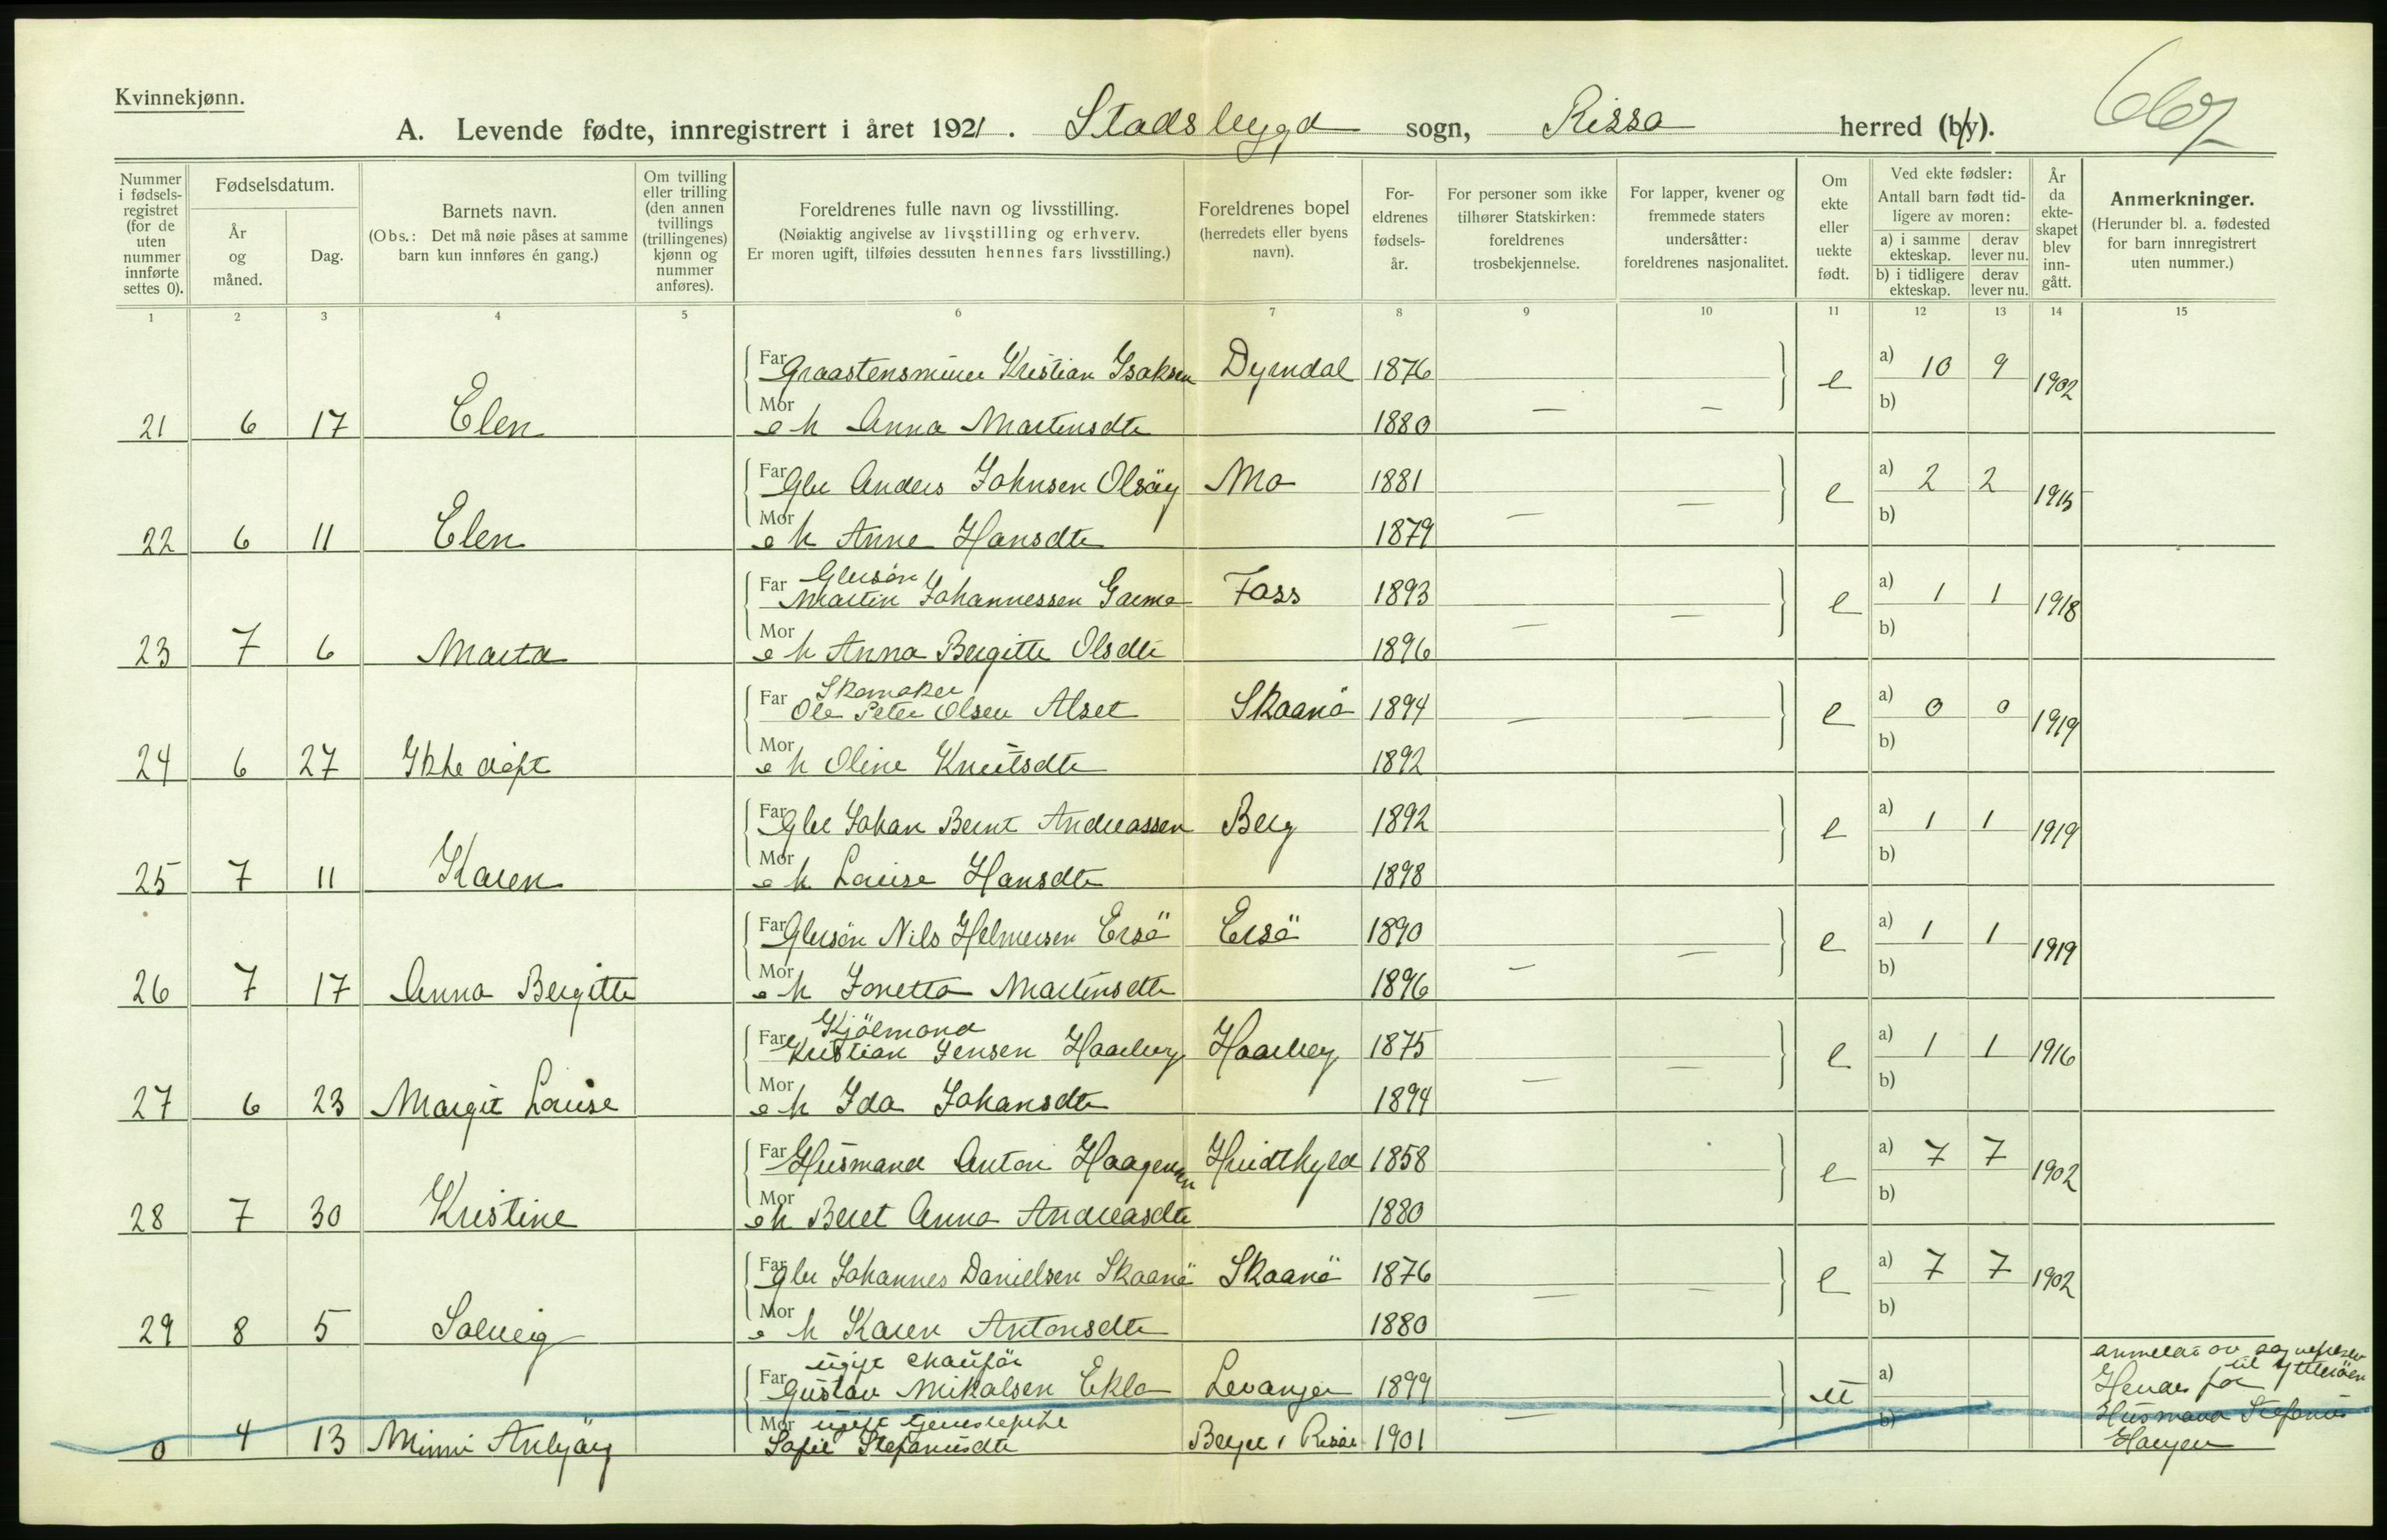 Kvinnekjønn.
A. Levende fødte, innregistrert i året 1921. Stadsbygd sogn, Rissa herred (by).
Nummer i fødsels-registret (for de uten nummer innførte settes 0).
Fødselsdatum.
År og måned.
Dag.
Barnets navn.
(Obs.: Det må nøie påses at samme barn kun innføres én gang.)
Om tvilling eller trilling (den annen tvillings (trillingenes) kjønn og nummer anføres).
Foreldrenes fulle navn og livsstilling.
(Nøiaktig angivelse av livsstilling og erhverv.
Er moren ugift, tilføies dessuten hennes fars livsstilling.)
Foreldrenes bopel (herredets eller byens navn).
For-eldrenes fødsels-år.
For personer som ikke tilhører Statskirken: foreldrenes trosbekjennelse.
For lapper, kvener og fremmede staters undersåtter: foreldrenes nasjonalitet.
Om ekte eller uekte født.
Ved ekte fødsler: Antall barn født tid-ligere av moren:
a) i samme ekteskap. derav lever nu.
b) i tidligere ekteskap. derav lever nu.
År da ekte-skapet blev inn-gått.
Anmerkninger.
(Herunder bl. a. fødested for barn innregistrert uten nummer.)
1 2 3 4 5 6 7 8 9 10 11 12 13 14 15
Far Graastensminer Kristian Isaksen Dyrndal 1876 — — e a) 10 9 1902
21 6 17 Elen Mor o h Anna Martensdtr 1880 b)
Far Gbr Anders Johnsen Olsöy Mo 1881 — — e a) 2 2 1915
22 6 11 Elen Mor o h Anne Hansdtr 1879 b)
Gbrsön
Far Martin Johannessen Foss 1893 — — e a) 1 1 1918
23 7 6 Marta Mor o h Anna Bergitte Olsdtr 1896 b)
Skomaker
Far Ole Peter Olsen Alset Skaanö 1894 — — e a) 0 0 1919
24 6 27 Ikke döpt Mor o h Oline Knutsdtr 1892 b)
Far Gbr Johan Bernt Andreassen Berg 1892 e a) 1 1 1919
25 7 11 Karen Mor o h Louise Hansdtr 1898 b)
Far Gbrsön Nils Helmersen Ersö Ersö 1890 — — e a) 1 1 1919
26 7 17 Anna Bergitte Mor o h Jonetta Martinsdtr 1896 b)
Kjölmand
Far Kristian Jensen Haarberg Haarberg 1875 — — e a) 1 1 1916
27 6 23 Margit Louise Mor o h Ida Johansdtr 1894 b)
Far Husmand Anton Haagensen 1858 e a) 7 7 1902
28 7 30 Kristine Mor o h Beret Anna Andreasdtr 1880 b)
Far Gbr Johannes Danielsen Skaanö Skaanö 1876 — — e a) 7 7 1902
29 8 5 Solveig Mor o h Karen Antonsdtr 1880 b)
ugift chauför
Far Gustav Mikalsen Eklo Levanger 1899 — a)
Mor ugift tjenestepike b)
0 4 13 Minni Sofie Stefanusdtr Rissa 1901
til Ytteröen
Hendes far
Husmand Stefanus